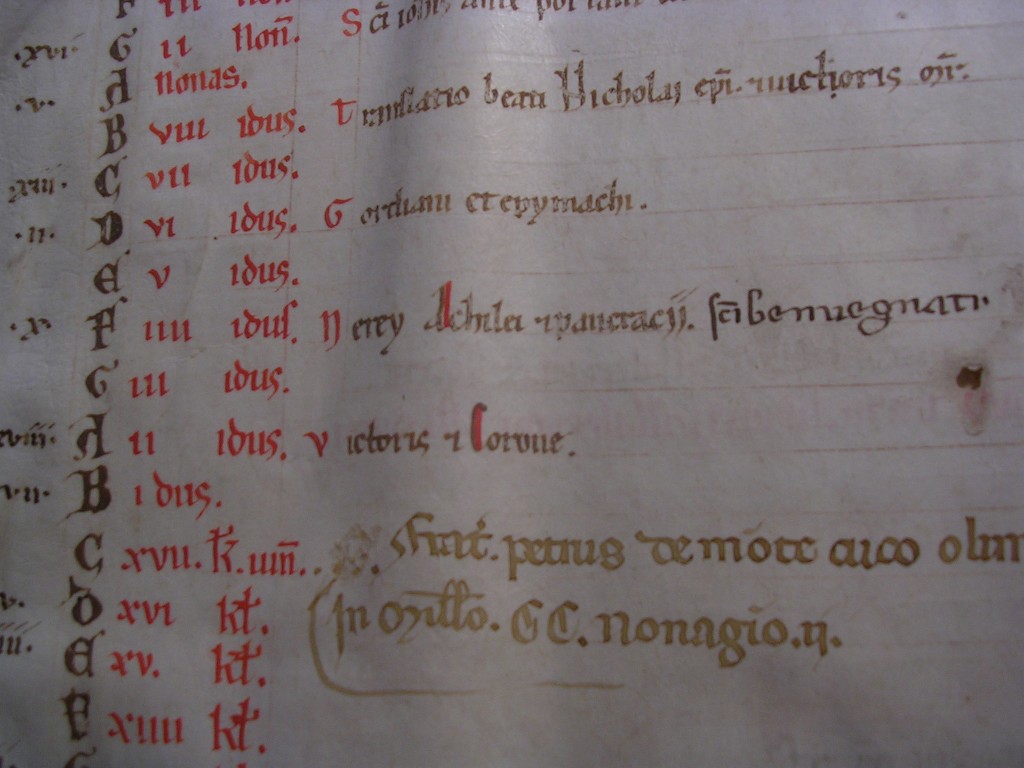 F III Non
.xvi. G II Non. Sci ioh ante por
.v. A Nonas.
B VIII idus. Translatio beati Nicholaj epi.
xiii. C VII idus.
.ii. D VI idus. Gordiani et epymachi.
E V idus.
.x. F IIII idus. Nerey Achilei 7 pancracij. sci benuegnati.
G III idus.
xviii. A II idus. Victoris 7 Corone.
vii. B idus.
C XVII. k. iun. frat. petrus de mote
v. D XVI kl. In Millo. CC. Nonagio. ij.
E XV. kl.
F XIIII kl.